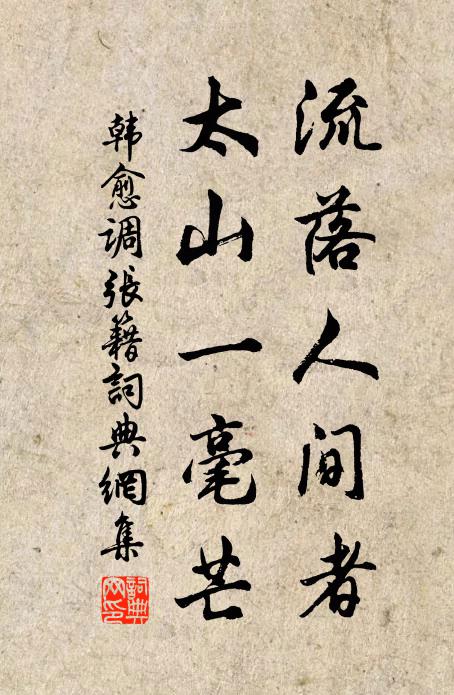 流落人间者
太山一毫芒
韩愈调张籍詞典網集
詞典网印